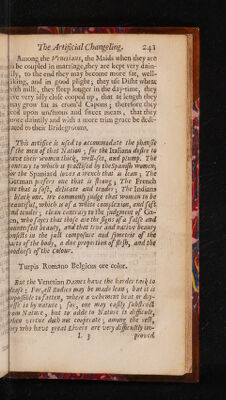 The Artificial Changeling. 241
Among the Venetians, the Maids when they are
to be coupled in marriage, they are kept very dain-
ily, to the end they may become more fat, well-
king, and in good plight; they use Diste wheat
with milk, they sleep longer in the day-time, they
live very idly close cooped up, that at length they
may grow fat as cram'd Capons; therefore they
feed upon unctious and sweet meats, that they
may daintily and with a more trim grace be dedi-
cated to their Bridegroom.
This artifice is used to accommodate the phansie
of the men of that Nation; for the Indians desire to
have their women thick, well-set, and plump. The
contrary to which is practised by the Spanish women,
for the Spanniard loves a wench that is lean; The
German prefers one that is strong; The French
one that is soft, delicate and tender; The Indians
a black one. We commonly judge that woman to be
beautifull, which is of a white complexion, and soft
and tender; clean contrary to the judgment of Ga-
len, who sayes that those are the signs of a false and
counterfeit beauty, and that true and native beauty
consists in the just composure and simetrie of the
parts of the body, a due proportion of flesh, and the
goodness of the Colour.
Turpis Romano Belgicus ore color.
But the Venetian Dames have the harder task to
please: For, all bodies may be made lean; but it is
impossible to fatten, where a vehement heat or dry-
nesse is by nature; for, one may easily substract
from Nature, but to adde to Nature is difficult,
when vertue doth not cooperate; among the rest,
they who have great Livers are very difficultly im-
I. 3 proved